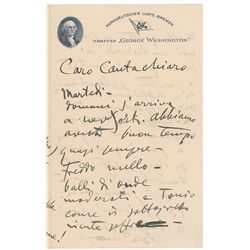 NORDDEUTSCHER LLOYD, BREMEN
DAMPFER „GEORGE WASHINGTON"
Caro Cantachiaro
Martedì-
domani s'arriva
a New York. Abbiamo
avuto buon tempo
quasi sempre-
freddo nullo-
balli di onde
moderati e Tonio
come il sottoscritto
niente